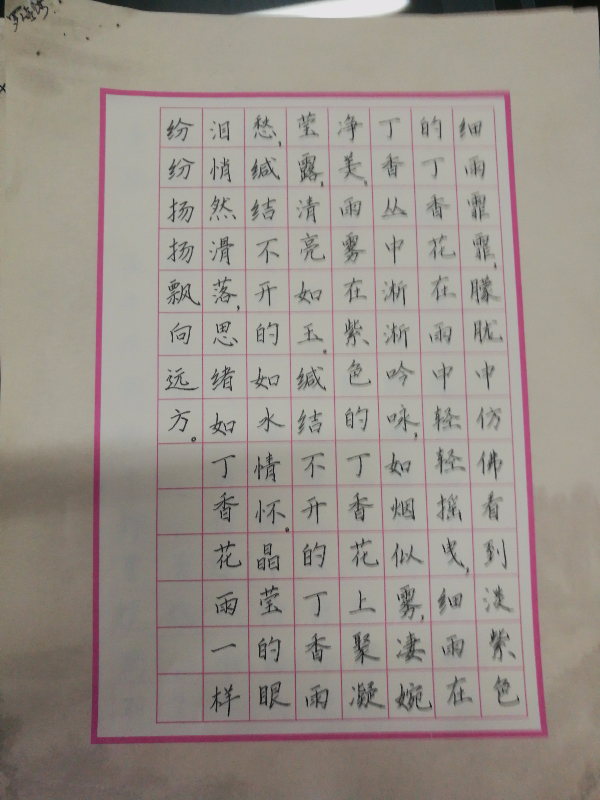 细雨霏霏,朦胧中仿佛看到淡紫色
的丁香花在雨中轻轻摇曳,细雨在
丁香丛中淅淅吟咏,如烟似雾,凄婉
净美,雨雾在紫色的丁香花上聚凝
莹露,清亮如玉。缄结不开的丁香雨
愁,缄结不开的如水情怀。晶莹的眼
泪悄然滑落,思绪如丁香花雨一样
纷纷扬扬飘向远方。